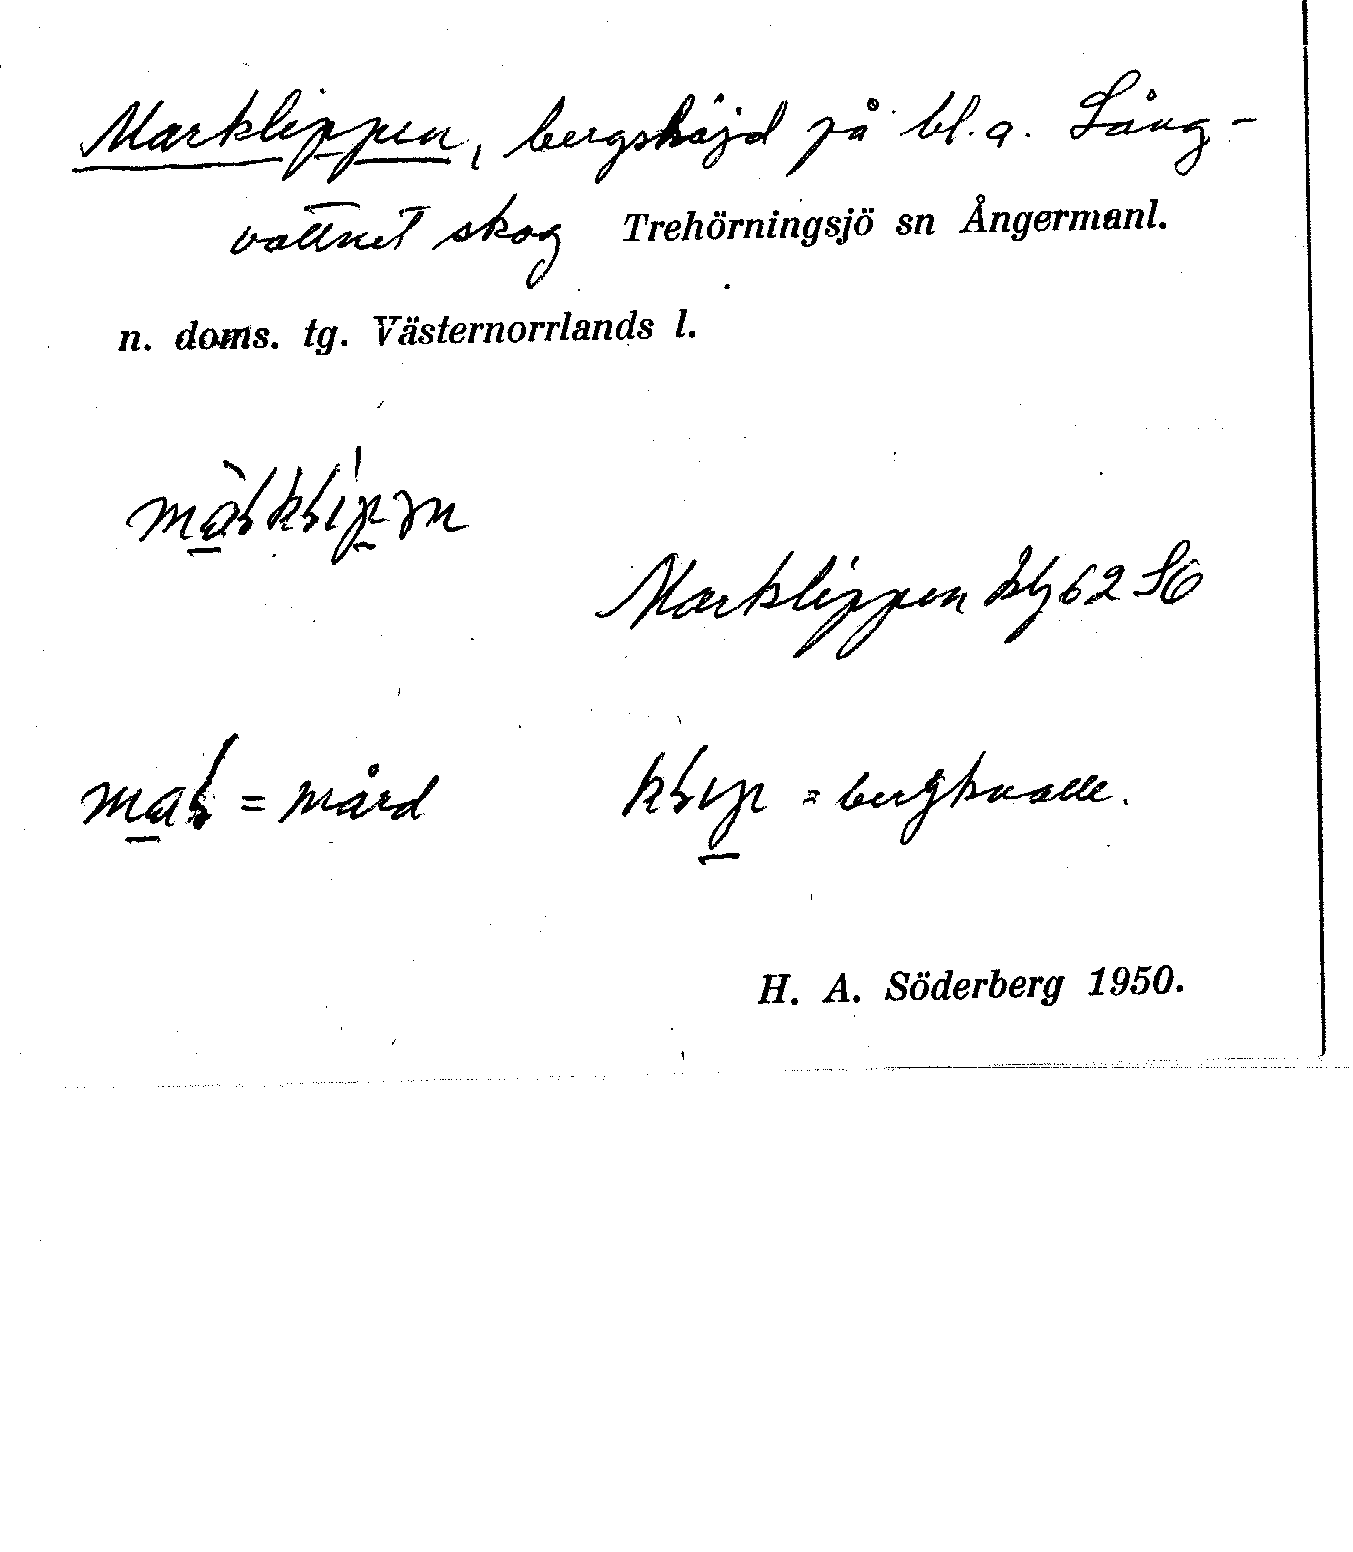 Marklippen, bergshöjd på bl.a. Lång-
vattnet skog Trehörningsjö sn Ångermanl.
n. doms. tg. Västernorrlands l.
Marklippen kbl 62 SO
= mård
= bergknalle.
H. A. Söderberg 1950.